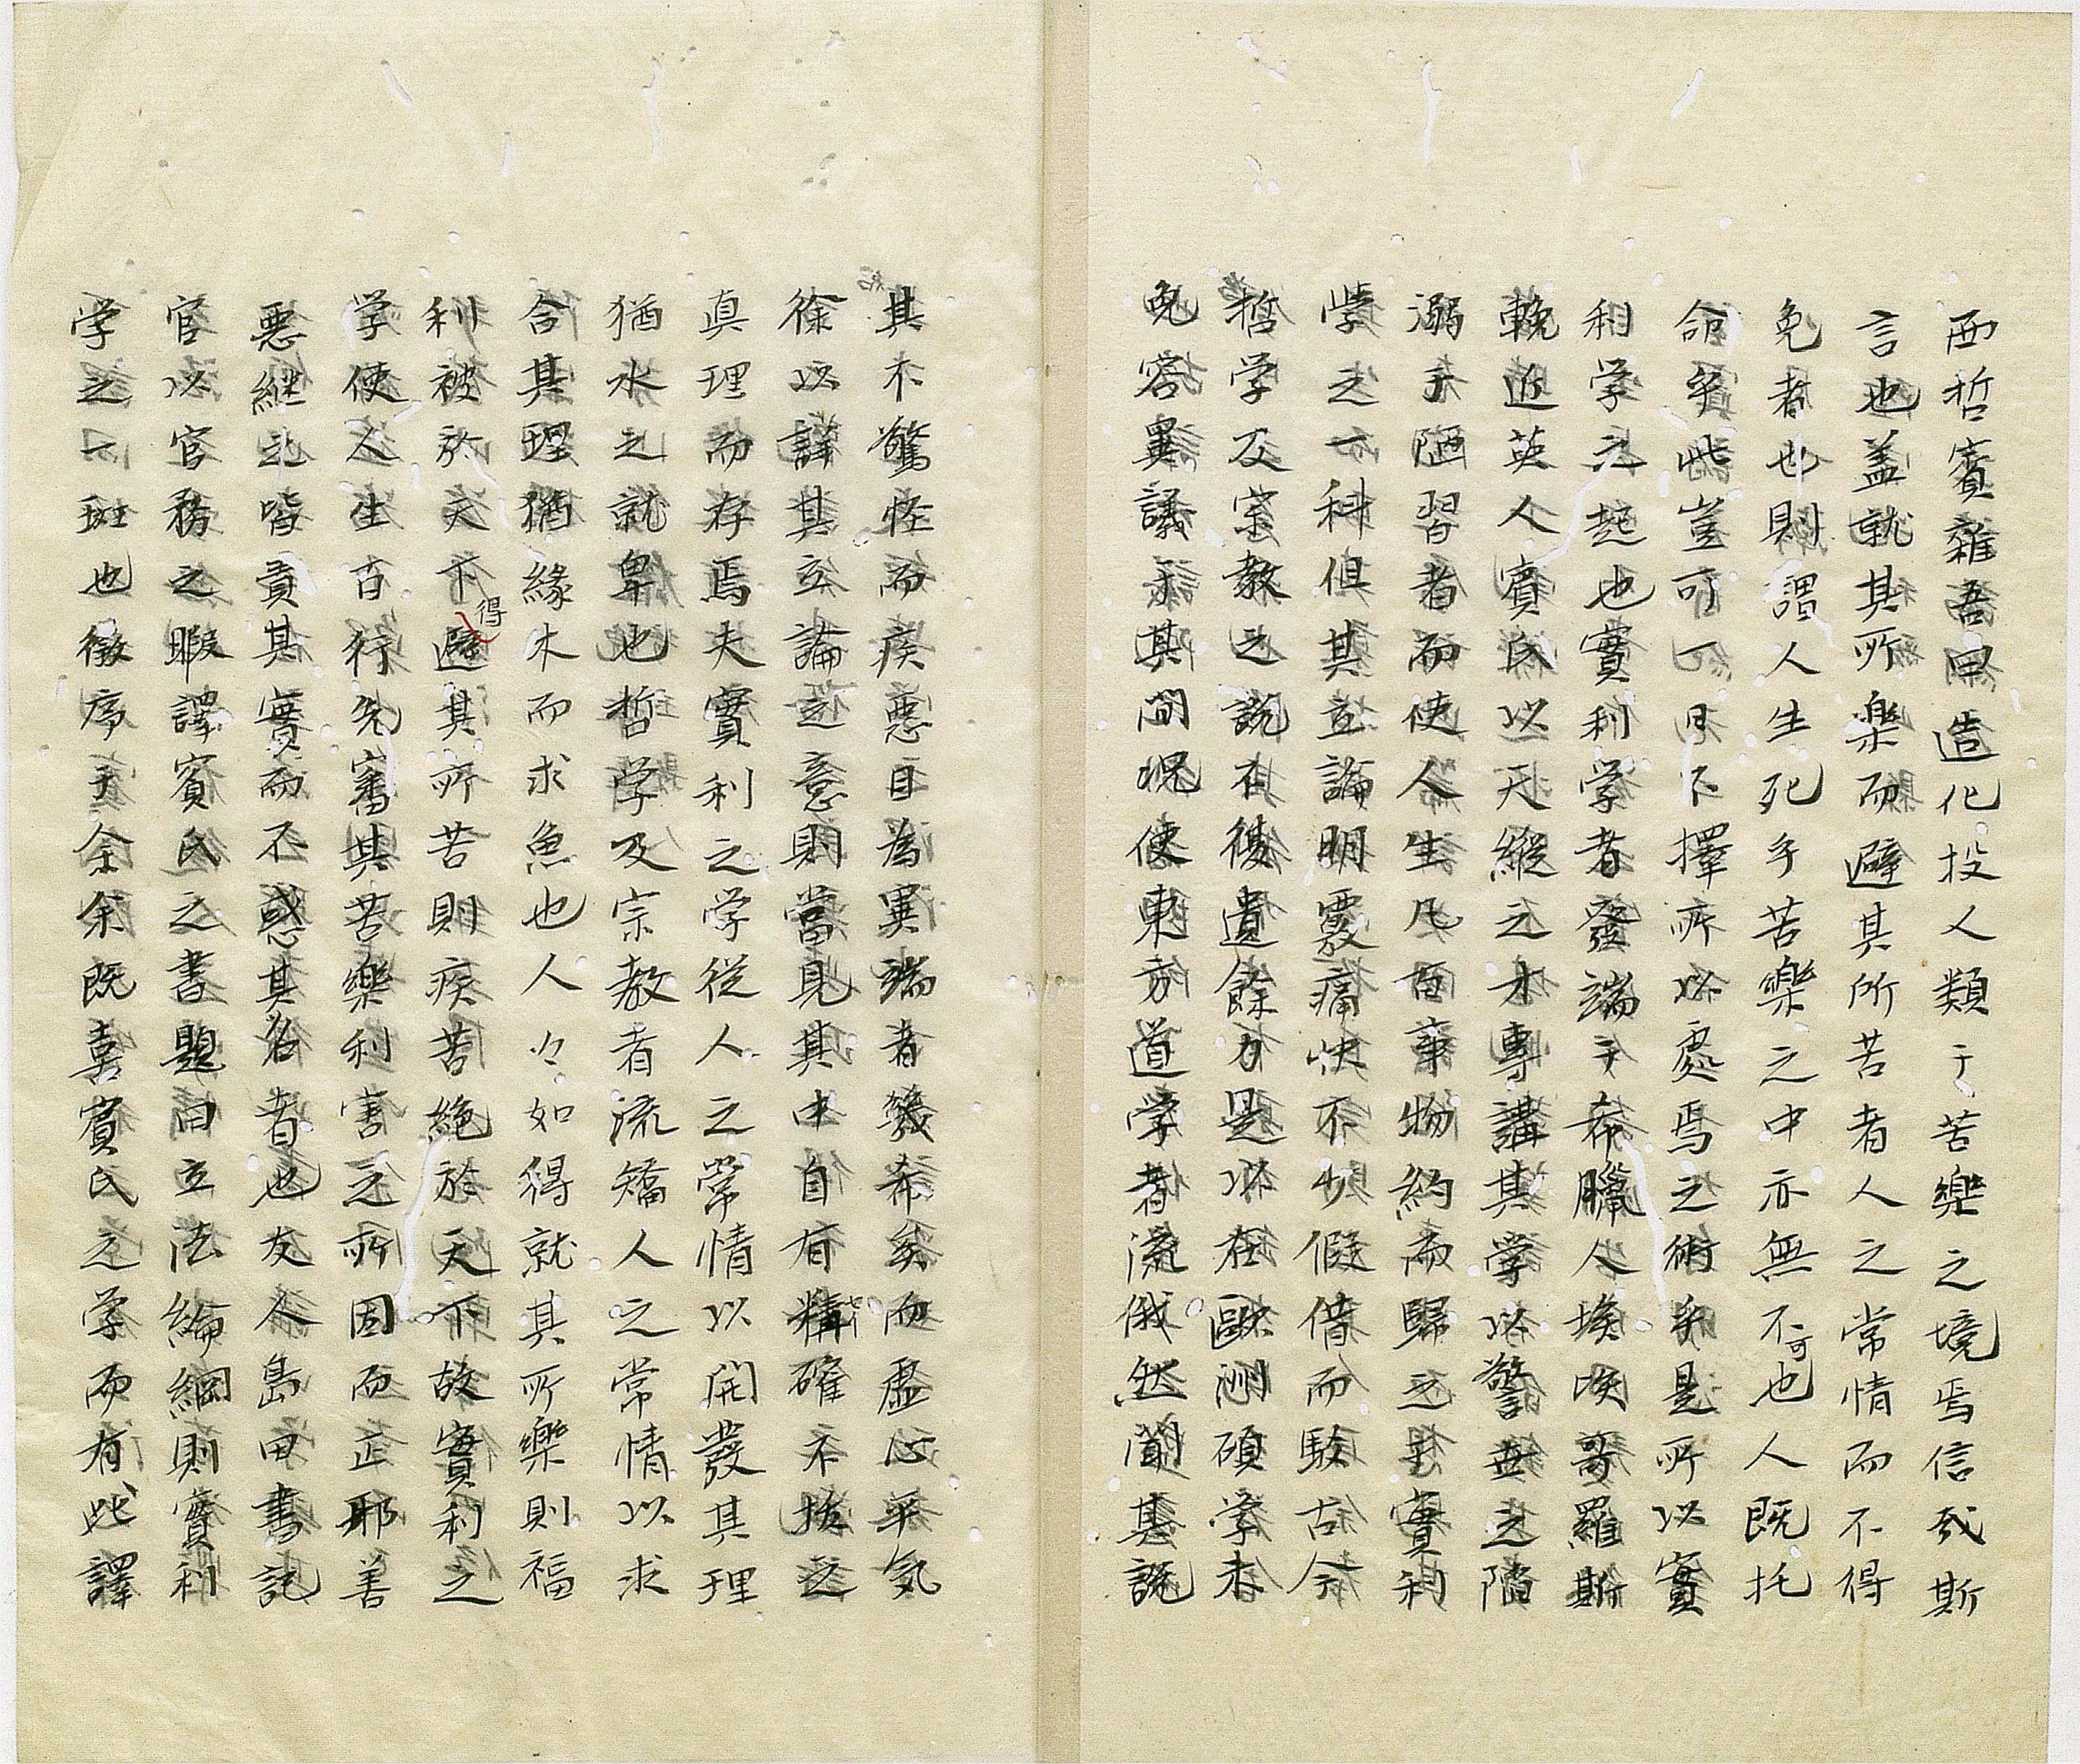 西哲賓雜吾曰造化投人類于苦樂之境焉信哉斯
言也盖就其所樂而避其所苦者人之常情而不得
免者也則謂人生死乎苦樂之中亦無不可也人既托
命乎此豈可一日不擇所以處焉之術乎是所以實
利学之起也實利学者發端于希臘人埃唉哥羅斯
輓近英人賓氏以天縱之才專講其学以警世之陷
溺于陋習者而使人生凡百事物約而歸之于實利
学之一科但其立論明覈痛快不少假借而駭古今
哲学及宗教之説不復遺餘力是以在歐洲碩学未
免容異議于其間况使東方道学者流俄然聞其説
其不驚怪而疾惡目為異端者幾希矣而虚心平気
徐以詳其立論之意則當見其中自有精確不拔之
真理而存焉夫實利之学從人之常情以開發其理
猶水之就卑也哲学及宗教者流矯人之常情以求
合其理猶緣木而求魚也人々如得就其所樂則福
利被於天下得避其所苦則疾苦絶於天下故實利之
学使人生百行先審其苦樂利害之所因而正邪善
惡継之皆責其實而不惑其名者也友人島田書記
官以官務之暇譯賓氏之書題曰立法綸綱則實利
学之一斑也徴序于余余既喜賓氏之学而有此譯